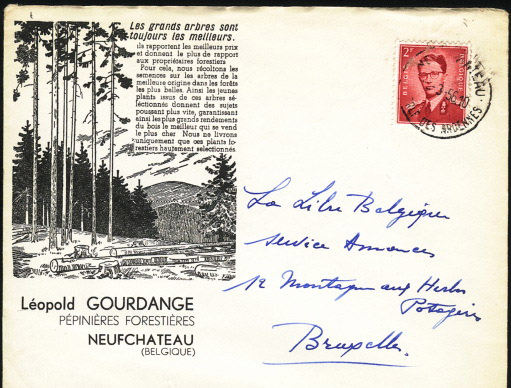 Les grands arbres sont
toujours les meilleurs.
ils rapportent les meilleurs prix
et donnent le plus de rapport
aux propriétaires forestiers
Pour cela, nous récoltons les
semences sur les arbres de la
meilleure origine dans les forêts
les plus belles. Ainsi les jeunes
plants issus de ces arbres sé-
léctionnés donnent des sujets
poussant plus vite, garantissant
ainsi les plus grands rendements
du bois le meilleur qui se vend
le plus cher Nous ne livrons
uniquement que ces plants fo-
restiers hautement selectionnés
Léopold GOURDANGE
PÉPINIÈRES FORESTIÈRES
NEUFCHATEAU
(BELGIQUE)
2F
BELGIQUE
BELGIE
DES ARDENNES
La Libre Belgique
service Annonces
12 Montagne aux Herbes
Potagères
Bruxelles.